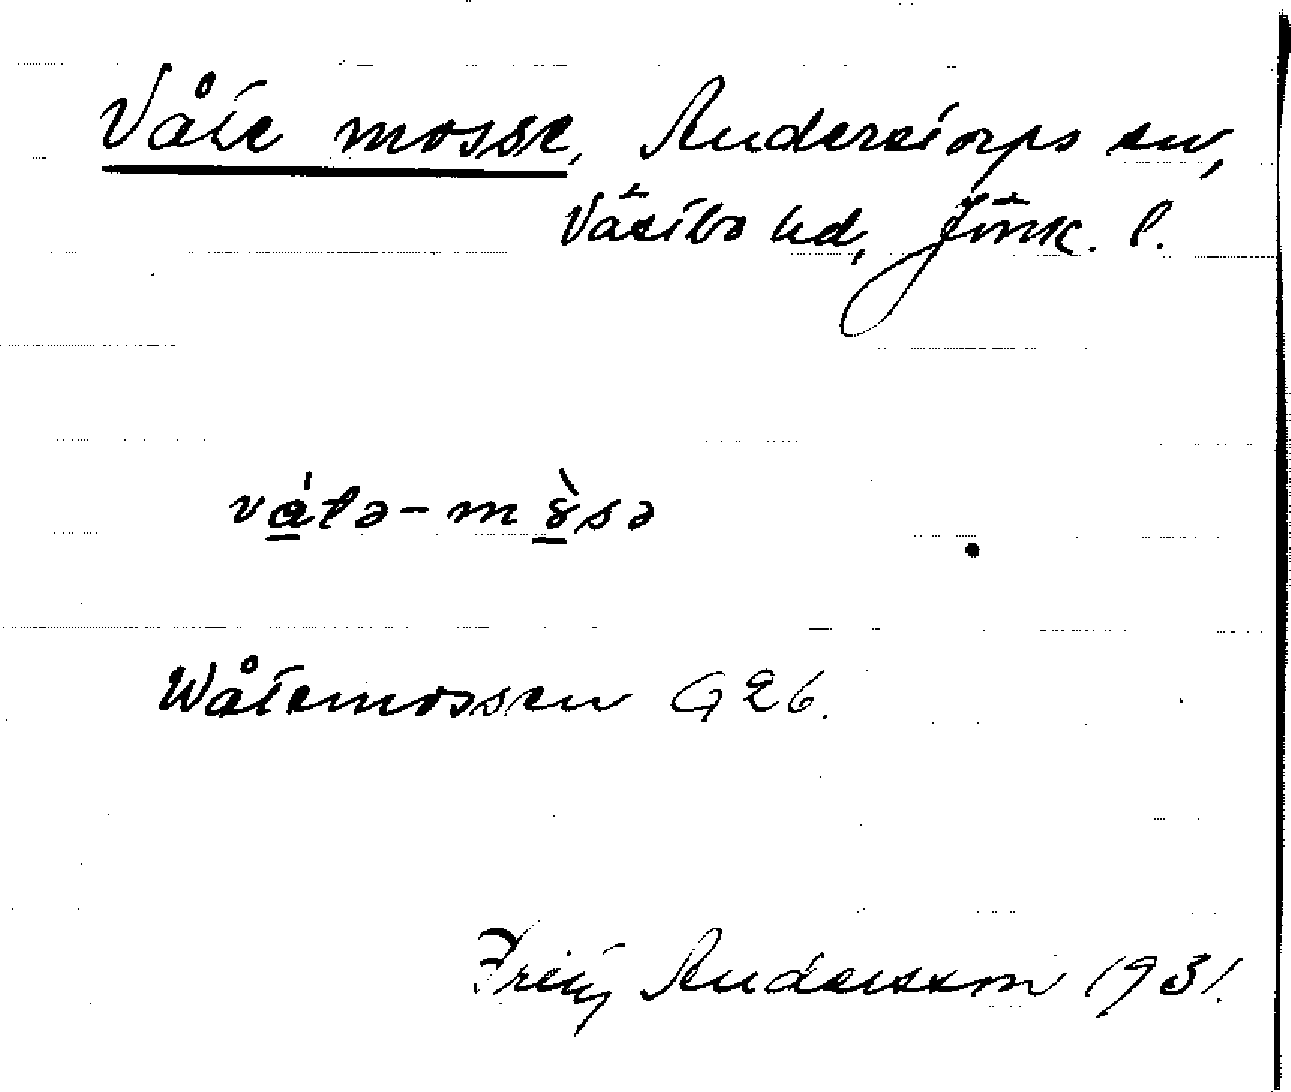 Våte mosse, Anderstorps sn,
Västbo hd, Jönk. l.
vátə-mòsə
Wåtemossen G 26.
Fritz Andersson 1931.